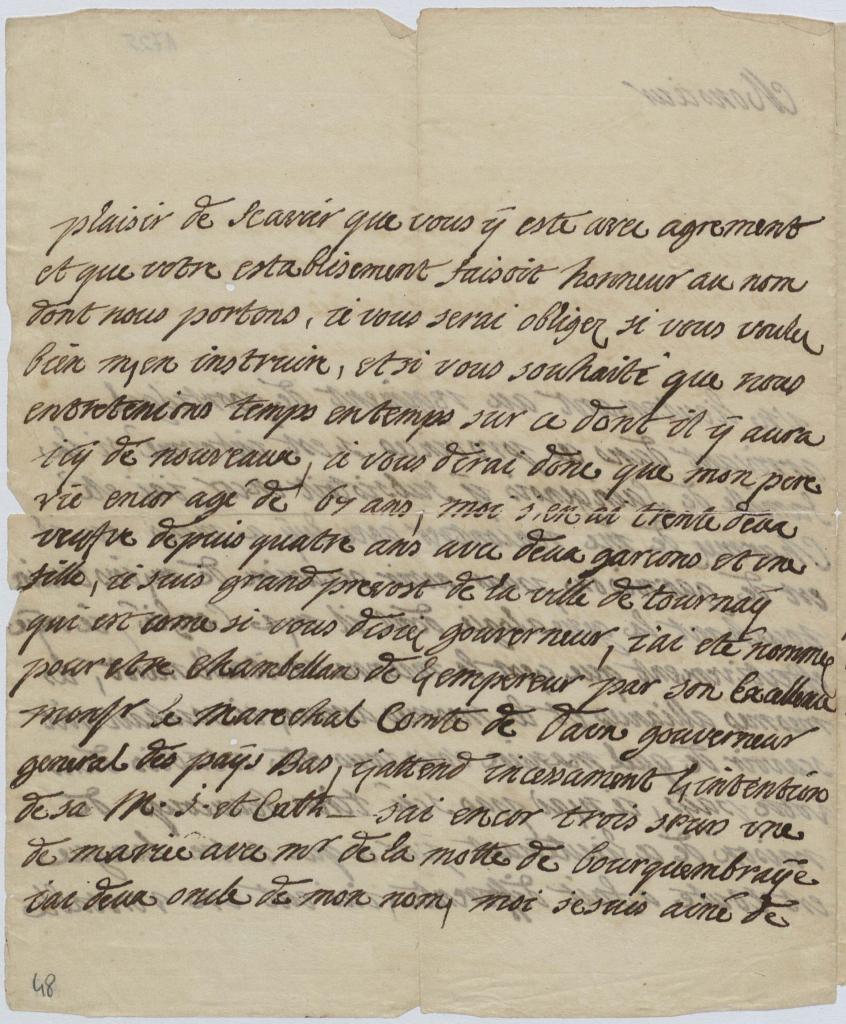 plaisir de scavoir que vous ÿ este avec agrement
et que votre establisement faisoit honneur au nom
dont nous portons, ie vous serai obligez si vous voulez
bien m,en instruire, et si vous souhaité que nous
entretenions temps en temps sur ce dont il ÿ aura
icÿ de nouveaux, ie vous dirai donc que mon pere
vie encor agé de 67 ans, moi j,en ai trente deux
veufve depuis quatre ans avec deux garcons et une
fille, ie suis grand prevost de la ville de tournaÿ
qui est come si vous disiez gouverneur, i'ai eté nommez
pour etre chambellan de l,empereur par son Excellence
monsr le Marechal Comte de Daun gouverneur
general des paÿs Bas, j,attend incessament l,intention
de sa M. J. et Cath_ j'ai encor trois seurs une
de mariée avec mr de la motte de bourquembraÿe
i'ai deux oncle de mon nom, moi je suis ainé de
48
Monsieur
1725